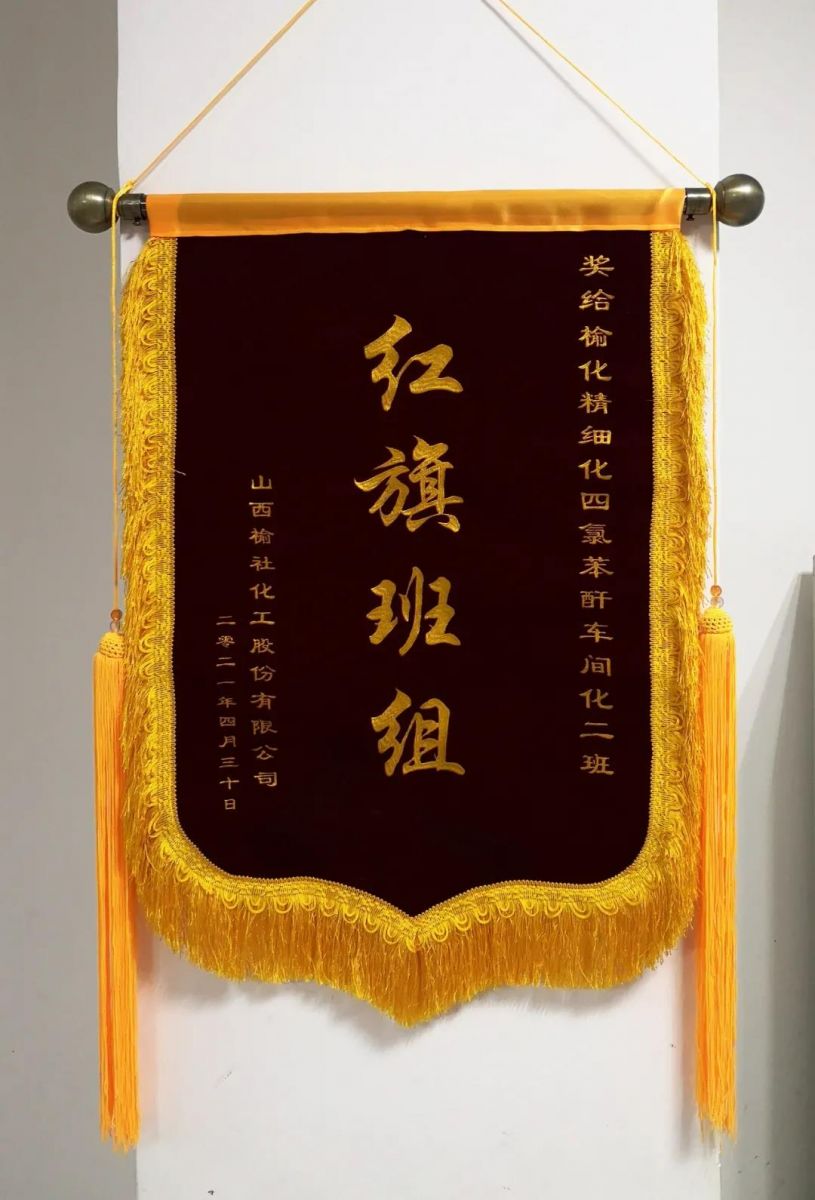 奖给榆化精细化四氯苯酐车间化二班
红旗班组
山西榆社化工股份有限公司
二零二一年四月三十日